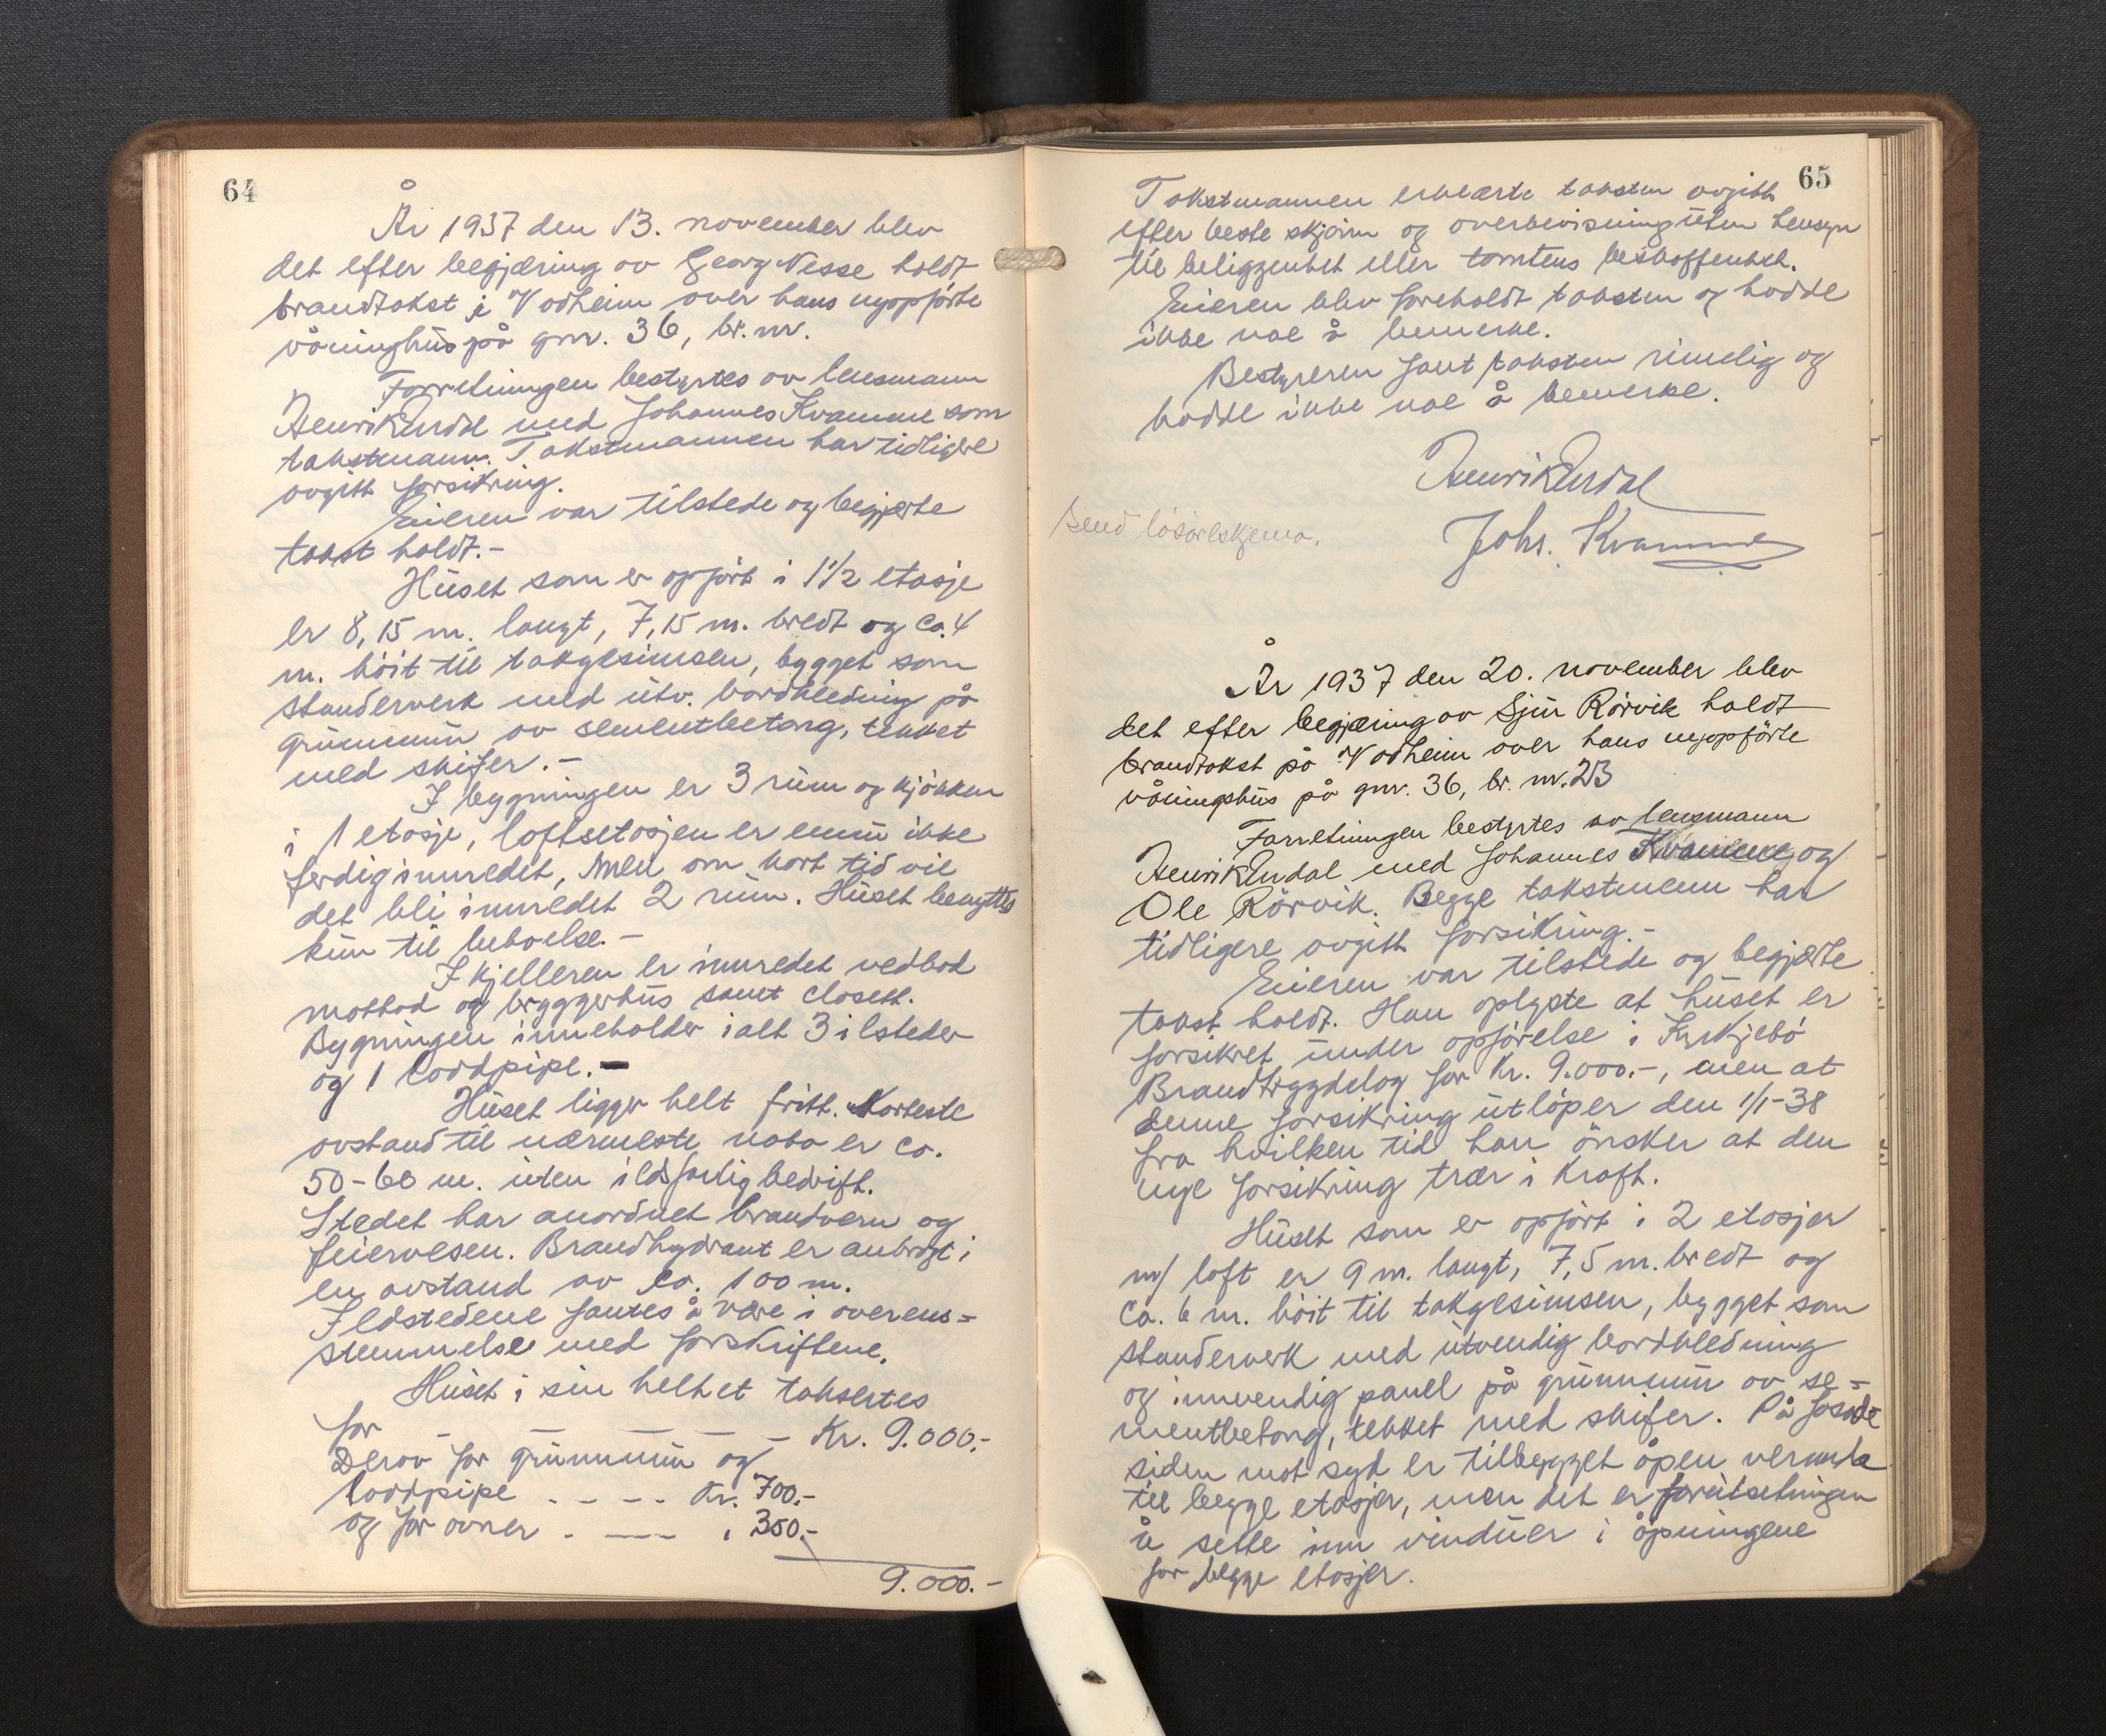 64
År 1937 den 13. november blev
det efter begjæring av Georg Nesse holdt
brandtakst i Vadheim over hans nyopførte
våninghus på gnr. 36, br. nr.
Forretningen bestyrtes av lensmann
Henrik Erdal med Johannes Kvamme som
takstmann. Takstmannen har tidligere
avgitt forsikring.
Eieren var tilstede og begjærte
takst holdt.-
Huset som er opført i 1 1/2 etasje
er 8,15 m. langt, 7,15 m. bredt og ca. 4
m. höit til takgesimsen, bygget som
standerverk med utv. bordkledning på
grunnmur av sementbetong, tekket
med skifer.-
I bygningen er 3 rum og kjökken
i 1 etasje, loftsetasjen er ennu ikke
ferdig innredet, men om kort tid vil
det bli innredet 2 rum. Huset benyttes
kun til beboelse.-
I kjelleren er innredet vedbod
matbod og bryggerhus samt closett.
Bygningen inneholder ialt 3 ilsteder
og 1 loddpipe.-
Huset ligger helt fritt. Korteste
avstand til nærmeste nabo er ca.
50-60 m. uten ildsfarlig bedrift.
Stedet har anordnet brandvern og
feiervesen. Brandhydrant er anbragt i
en avstand av ca. 100 m.
Ildstedene fantes å være i overens=
stemmelse med forskriftene.
Huset i sin helhet taksertes
for - - - - - Kr. 9.000.-
Derav for grunnmur og
loddpipe . - - - . Kr. 700.-
og for ovner . - - - " 350.-
9.000.-
65
Takstmannen erklærte taksten avgitt
efter beste skjönn og overbevisning uten hensyn
til beliggenhet eller tomtens beskaffenhet.
Eieren blev foreholdt taksten og hadde
ikke noe å bemerke.
Bestyreren fant taksten rimelig og
hadde ikke noe å bemerke.
Henrik Erdal
Johs. Kvamme
Send lösöreskjema.
År 1937 den 20. november blev
det efter begjæring av Sjur Rörvik holdt
brandtakst på Vadheim over hans nyopförte
våningshus på gnr. 36, br. nr. 23
Forretningen bestyrtes av lensmann
Henrik Erdal med Johannes Kvamme og
Ole Rörvik. Begge takstmenn har
tidligere avgitt forsikring.-
Eieren var tilstede og begjærte
takst holdt. Han oplyste at huset er
forsikret under opförelse i Kyrkjebö
Brandtrygdelag for Kr. 9.000.-, men at
denne forsikring utlöper den 1/1-38
fra hvilken tid han önsker at den
nye forsikring trær i kraft.
Huset som er opfört i 2 etasjer
m/ loft er 9 m. langt, 7,5 m. bredt og
ca. 6 m. höit til takgesimsen, bygget som
standerverk med utvendig bordkledning
og innvendig panel på grunnmur av se=
mentbetong, tekket med skifer. På fasade
siden mot syd er tilbygget åpen veranda
til begge etasjer, men det er forutsetningen
å sette inn vinduer i åpningene
for begge etasjer.